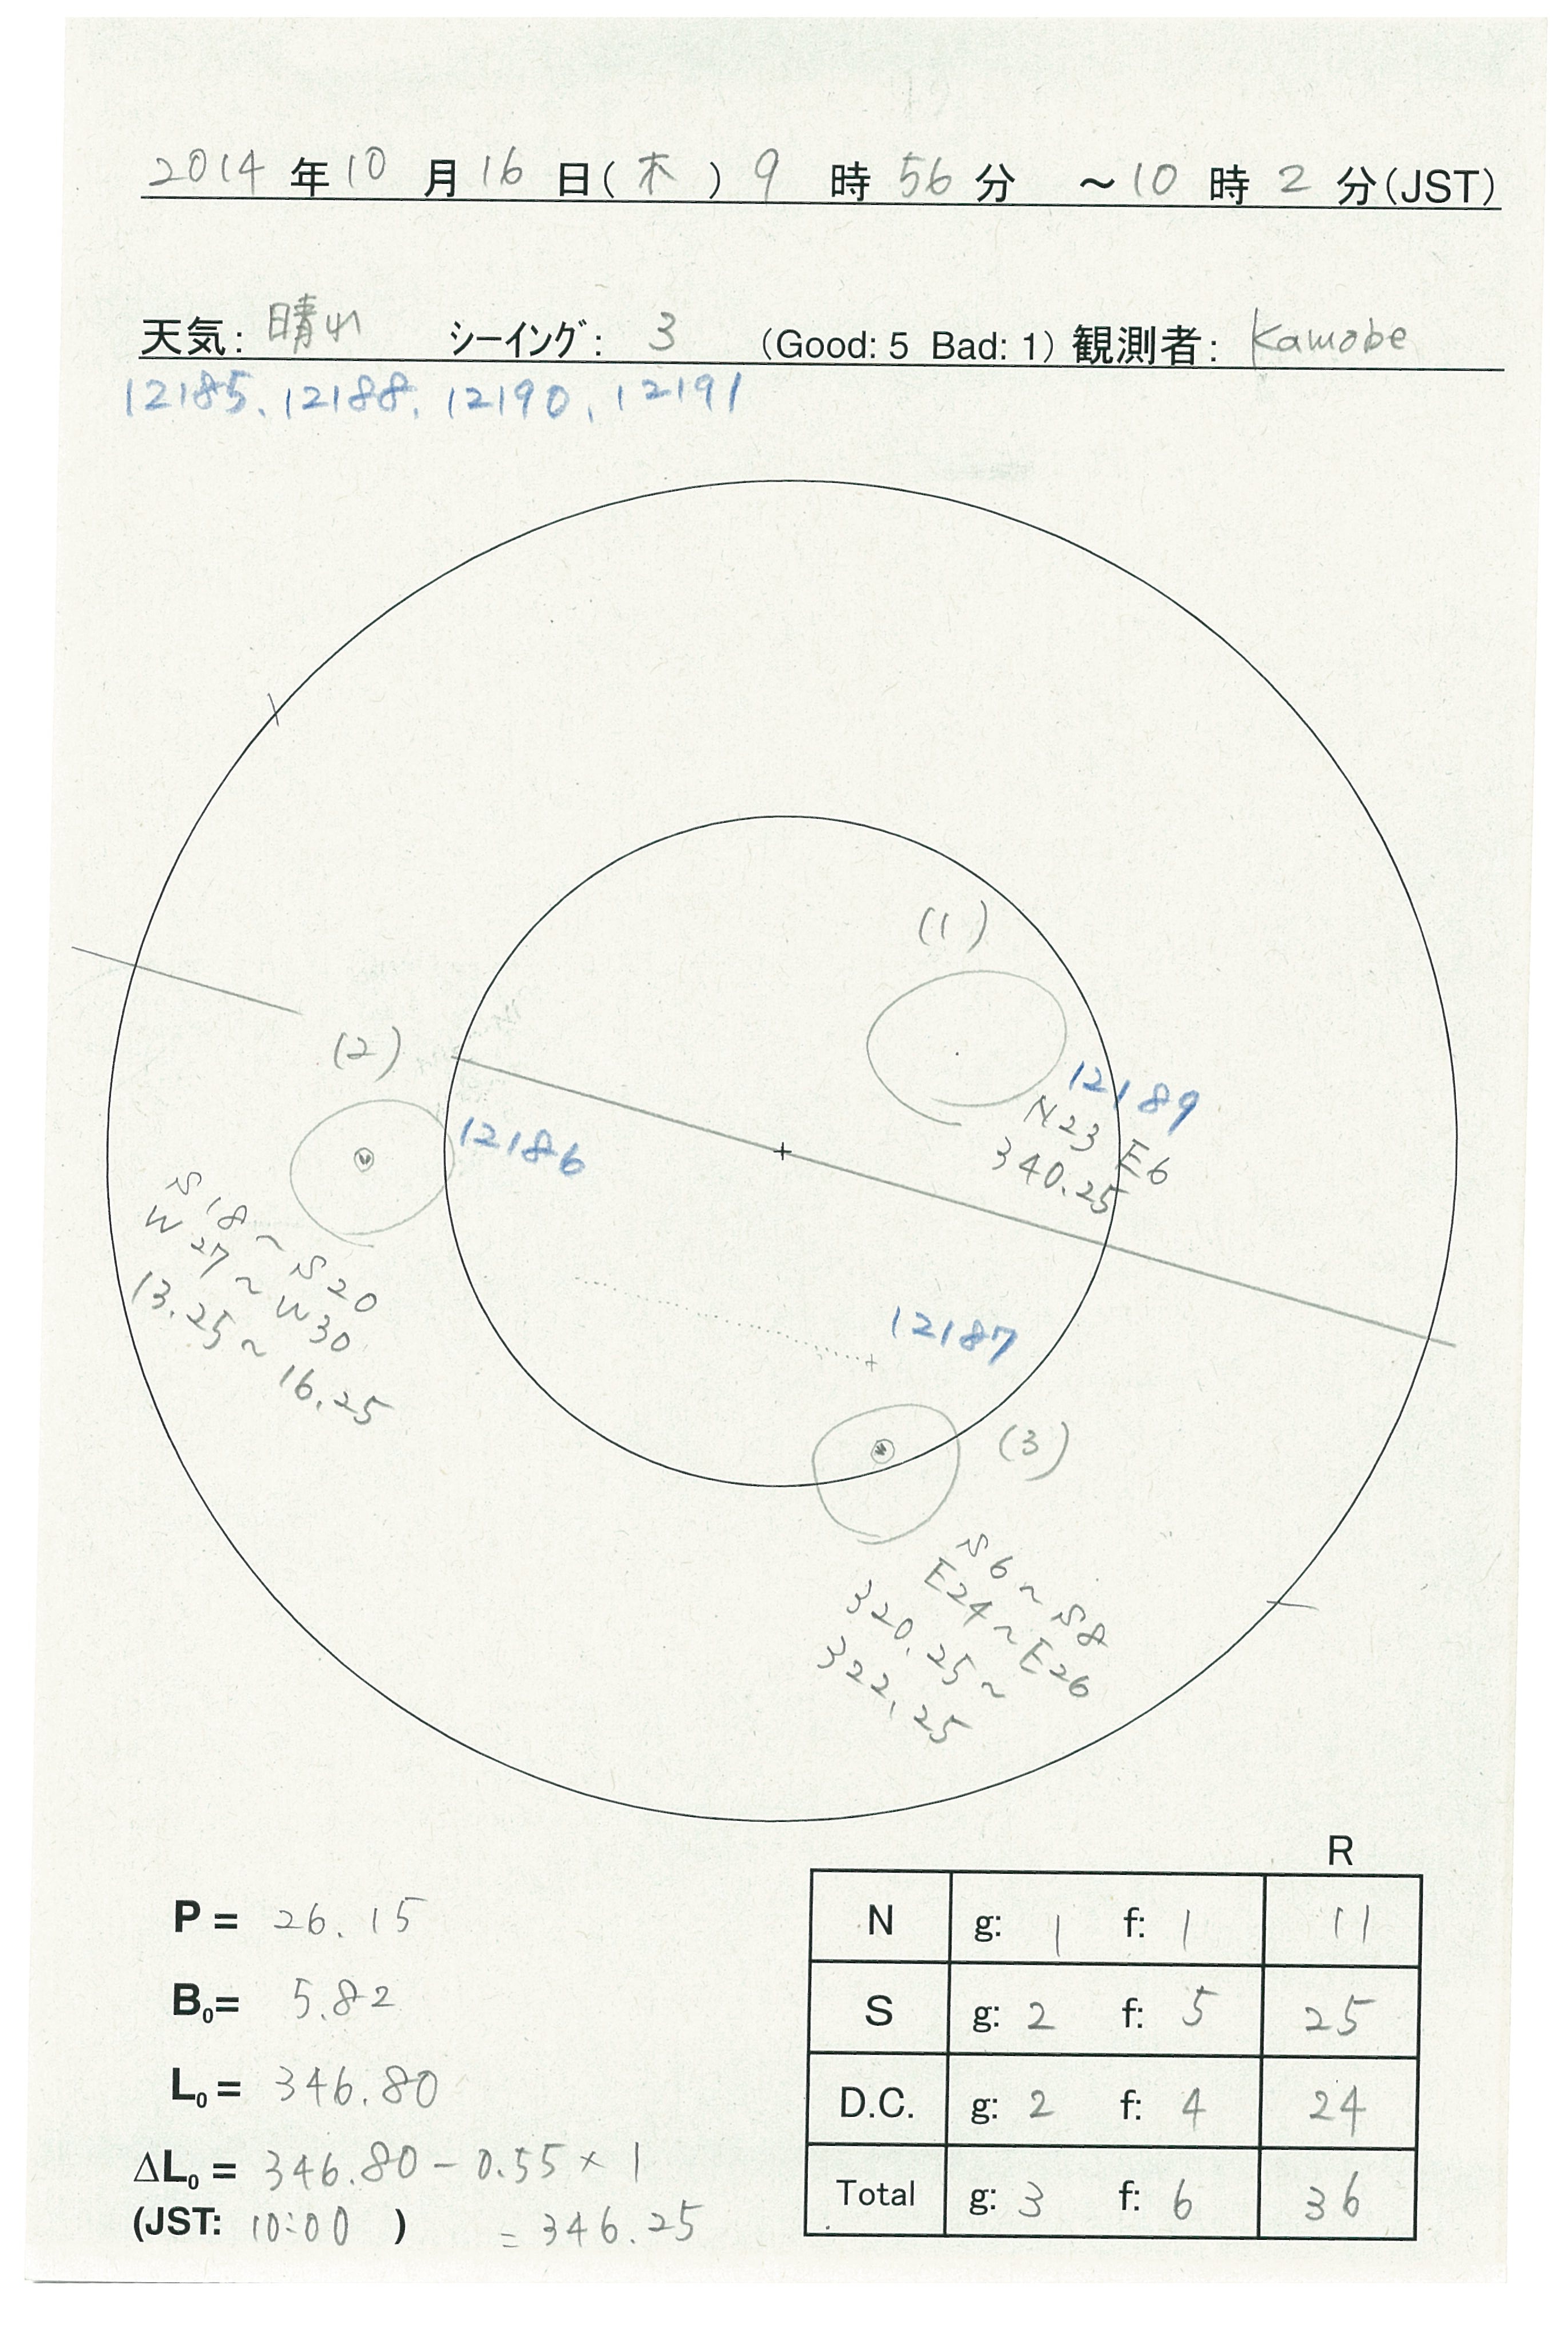 2014年10月16日(木)9時56分 ～10時2分(JST)
天気: 晴れ シーイング: 3 (Good: 5 Bad: 1) 観測者: Kamobe
12185、12188、12190、12191
(1)
12189
N23 E6
340.25
(2)
12186
S18～S20
W27～W30
13.25～
16.25
12187
(3)
S6～S8
E24～E26
320.25～
322.25
P = 26.15
B₀= 5.82
L₀= 346.80
ΔL₀= 346.80-0.55×1
(JST: 10:00 ) =346.25
R
N g: 1 f: 1 11
S g: 2 f: 5 25
D.C. g: 2 f: 4 24
Total g: 3 f: 6 36